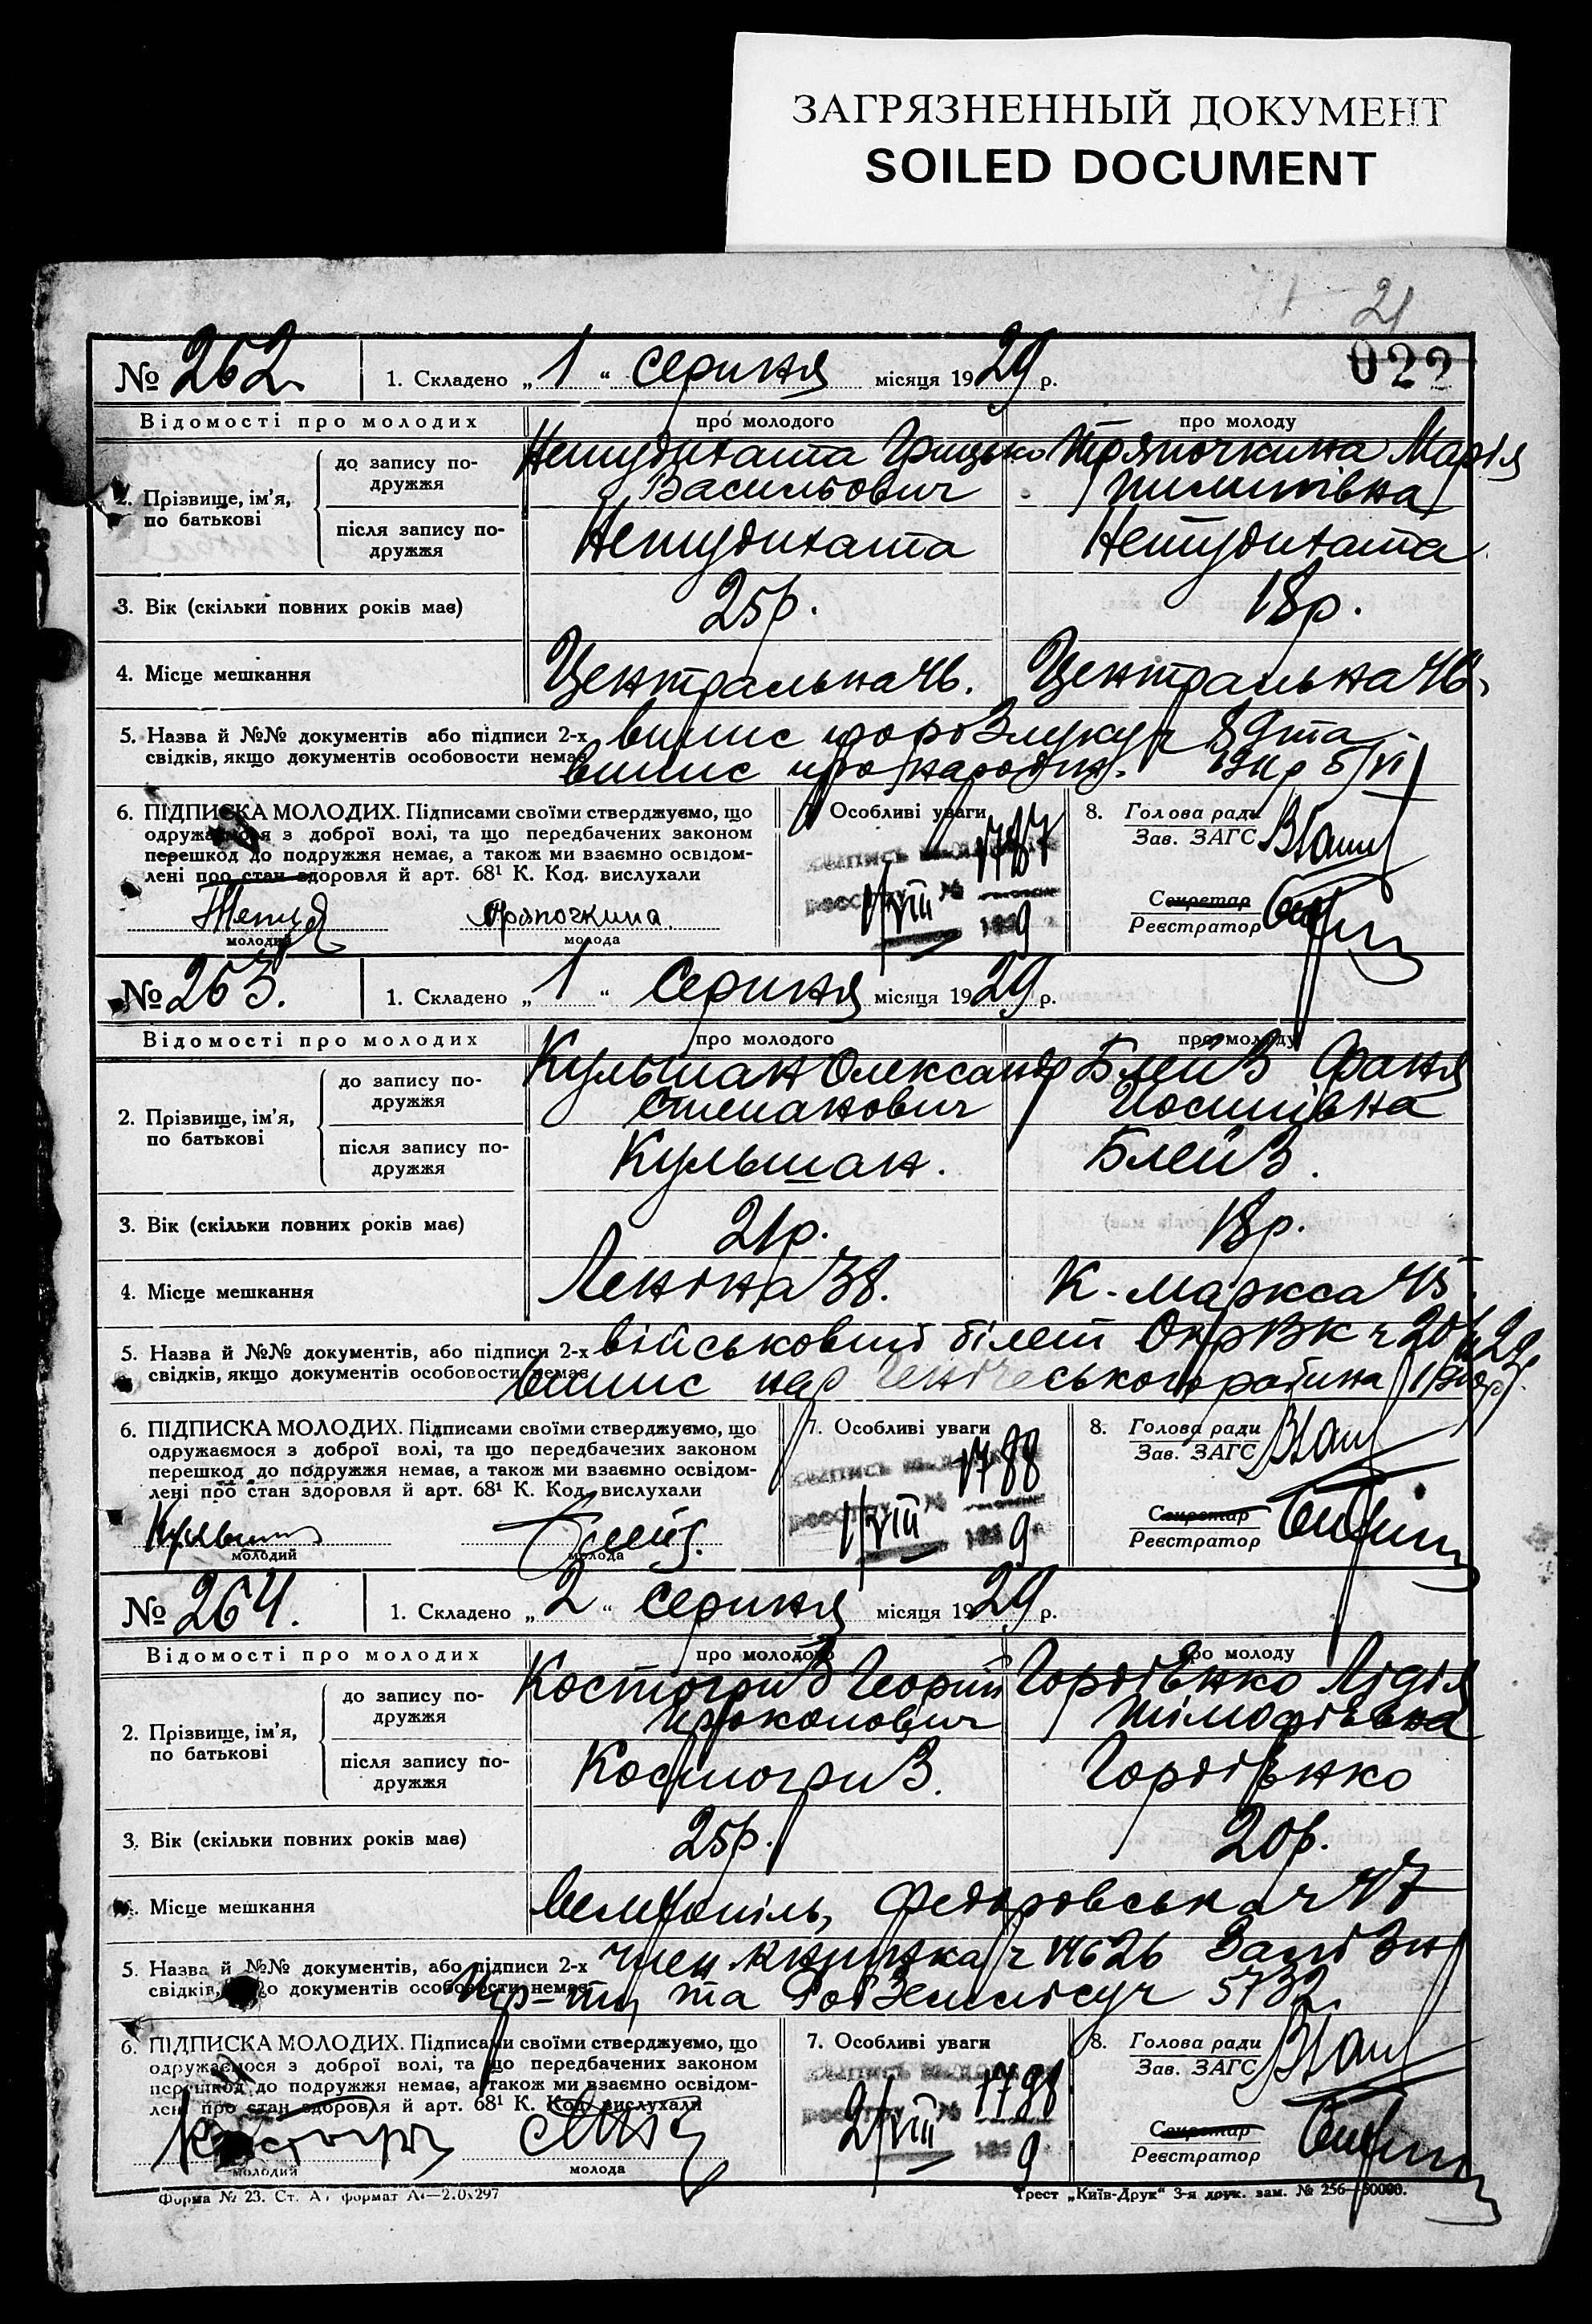 ЗАГРЯЗНЕННЫЙ ДОКУМЕНТ
SOILED DOCUMENT
21
022
№ 262. 1. Складено „1“ серпня місяця 1929 р.
Відомості про молодих про молодого про молоду
2. Прізвище, ім’я, по батькові
до запису подружжя Непийдихата Грицько Васильович Тряпочкина Марія Пилипівна
після запису подружжя
3. Вік (скільки повних років має) 25р. 18р.
4. Місце мешкання Центральна 46. Центральна 46.
5. Назва й №№ документів або підписи 2-х
свідків, якщо документів особовости немає
випис
випис про народж.
6. ПІДПИСКА МОЛОДИХ. Підписами своїми стверджуємо, що
одружаємося з доброї волі, та що передбачених законом
перешкод до подружжя немає, а також ми взаємно освідом-
лені про стан здоровля й арт. 68¹ К. Код. вислухали
Тряпочкина.
молодий молода
7. Особливі уваги
1787
1/VIII 9
8. Голова ради
Зав. ЗАГС
Секретар
Реєстратор
№ 263. 1. Складено „1“ Серпня місяця 1929 р.
Відомості про молодих про молодого про молоду
2. Прізвище, ім’я, по батькові
до запису подружжя Кульшан Олександр Степанович Блейз Фаня Йосипівна
після запису подружжя Кульшан. Блейз.
3. Вік (скільки повних років має) 21р. 18р.
4. Місце мешкання Леніна 38. К. Маркса 45.
5. Назва й №№ документів, або підписи 2-х
свідків, якщо документів особовости немає
військовий білет ОкрВК
випис нар Генічеського рабина
6. ПІДПИСКА МОЛОДИХ. Підписами своїми стверджуємо, що
одружаємося з доброї волі, та що передбачених законом
перешкод до подружжя немає, а також ми взаємно освідом-
лені про стан здоровля й арт. 68¹ К. Код. вислухали
молодий молода
7. Особливі уваги
1788
1/VIII 9
8. Голова ради
Зав. ЗАГС
Секретар
Реєстратор
№ 264. 1. Складено „2“ серпня місяця 1929 р.
Відомості про молодих про молодого про молоду
2. Прізвище, ім’я, по батькові
до запису подружжя Костогриз Георгій Прокопович Гордієнко Лідія Тімофіївна
після запису подружжя Костогриз. Гордієнко
3. Вік (скільки повних років має) 25р. 20р.
4. Місце мешкання Федоровська ч 47
5. Назва й №№ документів, або підписи 2-х
свідків, якщо документів особовости немає
член. книжка ч 14626
та РобЗемліс ч 5732
6. ПІДПИСКА МОЛОДИХ. Підписами своїми стверджуємо, що
одружаємося з доброї волі, та що передбачених законом
перешкод до подружжя немає, а також ми взаємно освідом-
лені про стан здоровля й арт. 68¹ К. Код. вислухали
молодий молода
7. Особливі уваги
1798
2/VIII 9
8. Голова ради
Зав. ЗАГС
Секретар
Реєстратор
Форма № 23. Ст. А, формат А₄—210x297
Трест „Київ-Друк“ 3-я друк. зам. № 256—50000.